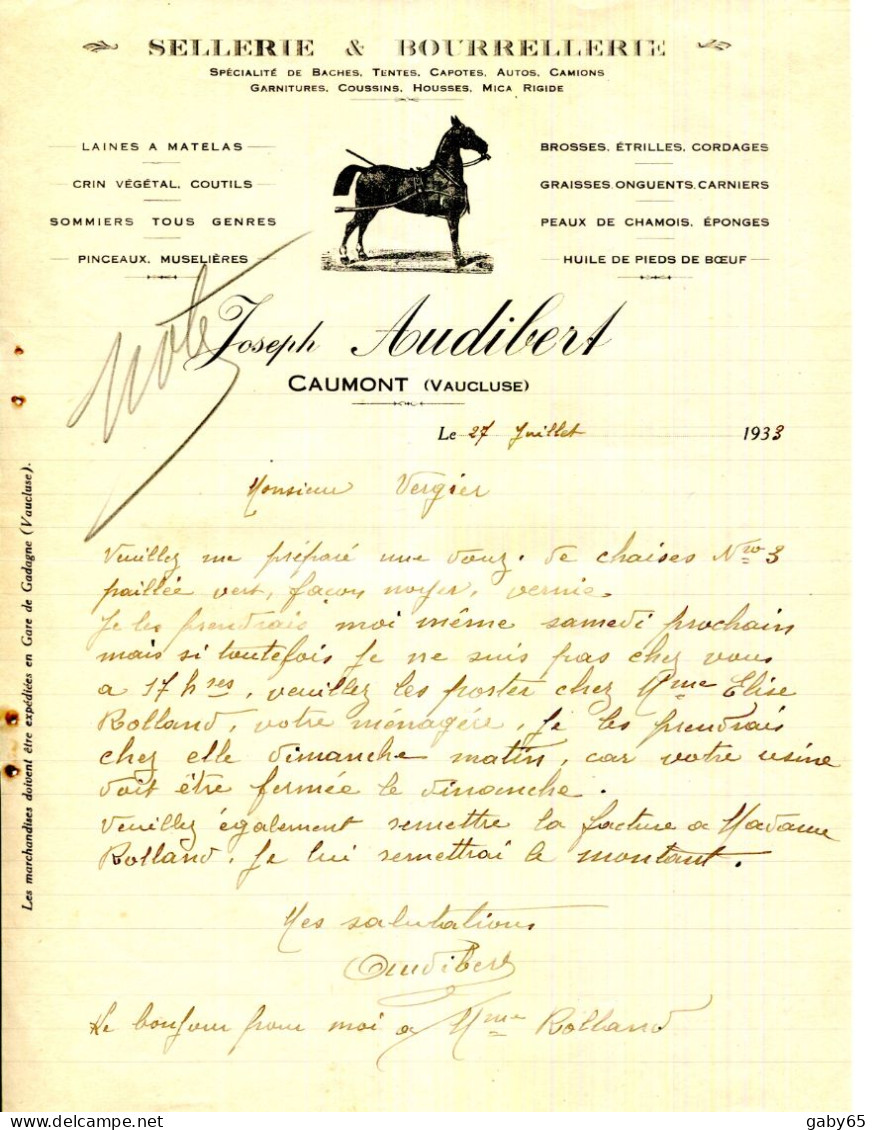 SELLERIE & BOURRELLERIE
SPÉCIALITÉ DE BACHES, TENTES, CAPOTES, AUTOS, CAMIONS
GARNITURES, COUSSINS, HOUSSES, MICA RIGIDE
LAINES A MATELAS
CRIN VÉGÉTAL, COUTILS
SOMMIERS TOUS GENRES
PINCEAUX, MUSELIÈRES
BROSSES, ÉTRILLES, CORDAGES
GRAISSES, ONGUENTS, CARNIERS
PEAUX DE CHAMOIS, ÉPONGES
HUILE DE PIEDS DE BŒUF
noté
Joseph Audibert
CAUMONT (VAUCLUSE)
Le 27 Juillet 1933
Monsieur Vergier
Veuillez me préparé une douz. de chaises Nro 3
paillée vert, façon noyer, vernie.
Je les prendrais moi même samedi prochain
mais si toutefois je ne suis pas chez vous
a 17 hres, veuillez les poster chez Mme Elise
Rolland, votre ménagère, je les prendrais
chez elle dimanche matin, car votre usine
doit être fermée le dimanche.
Veuillez également remettre la facture a Madame
Rolland, je lui remettrai le montant.
Mes salutations
Audibert
Le bonjour pour moi a Mme Rolland
Les marchandises doivent être expédiées en Gare de Gadagne (Vaucluse).
gaby65